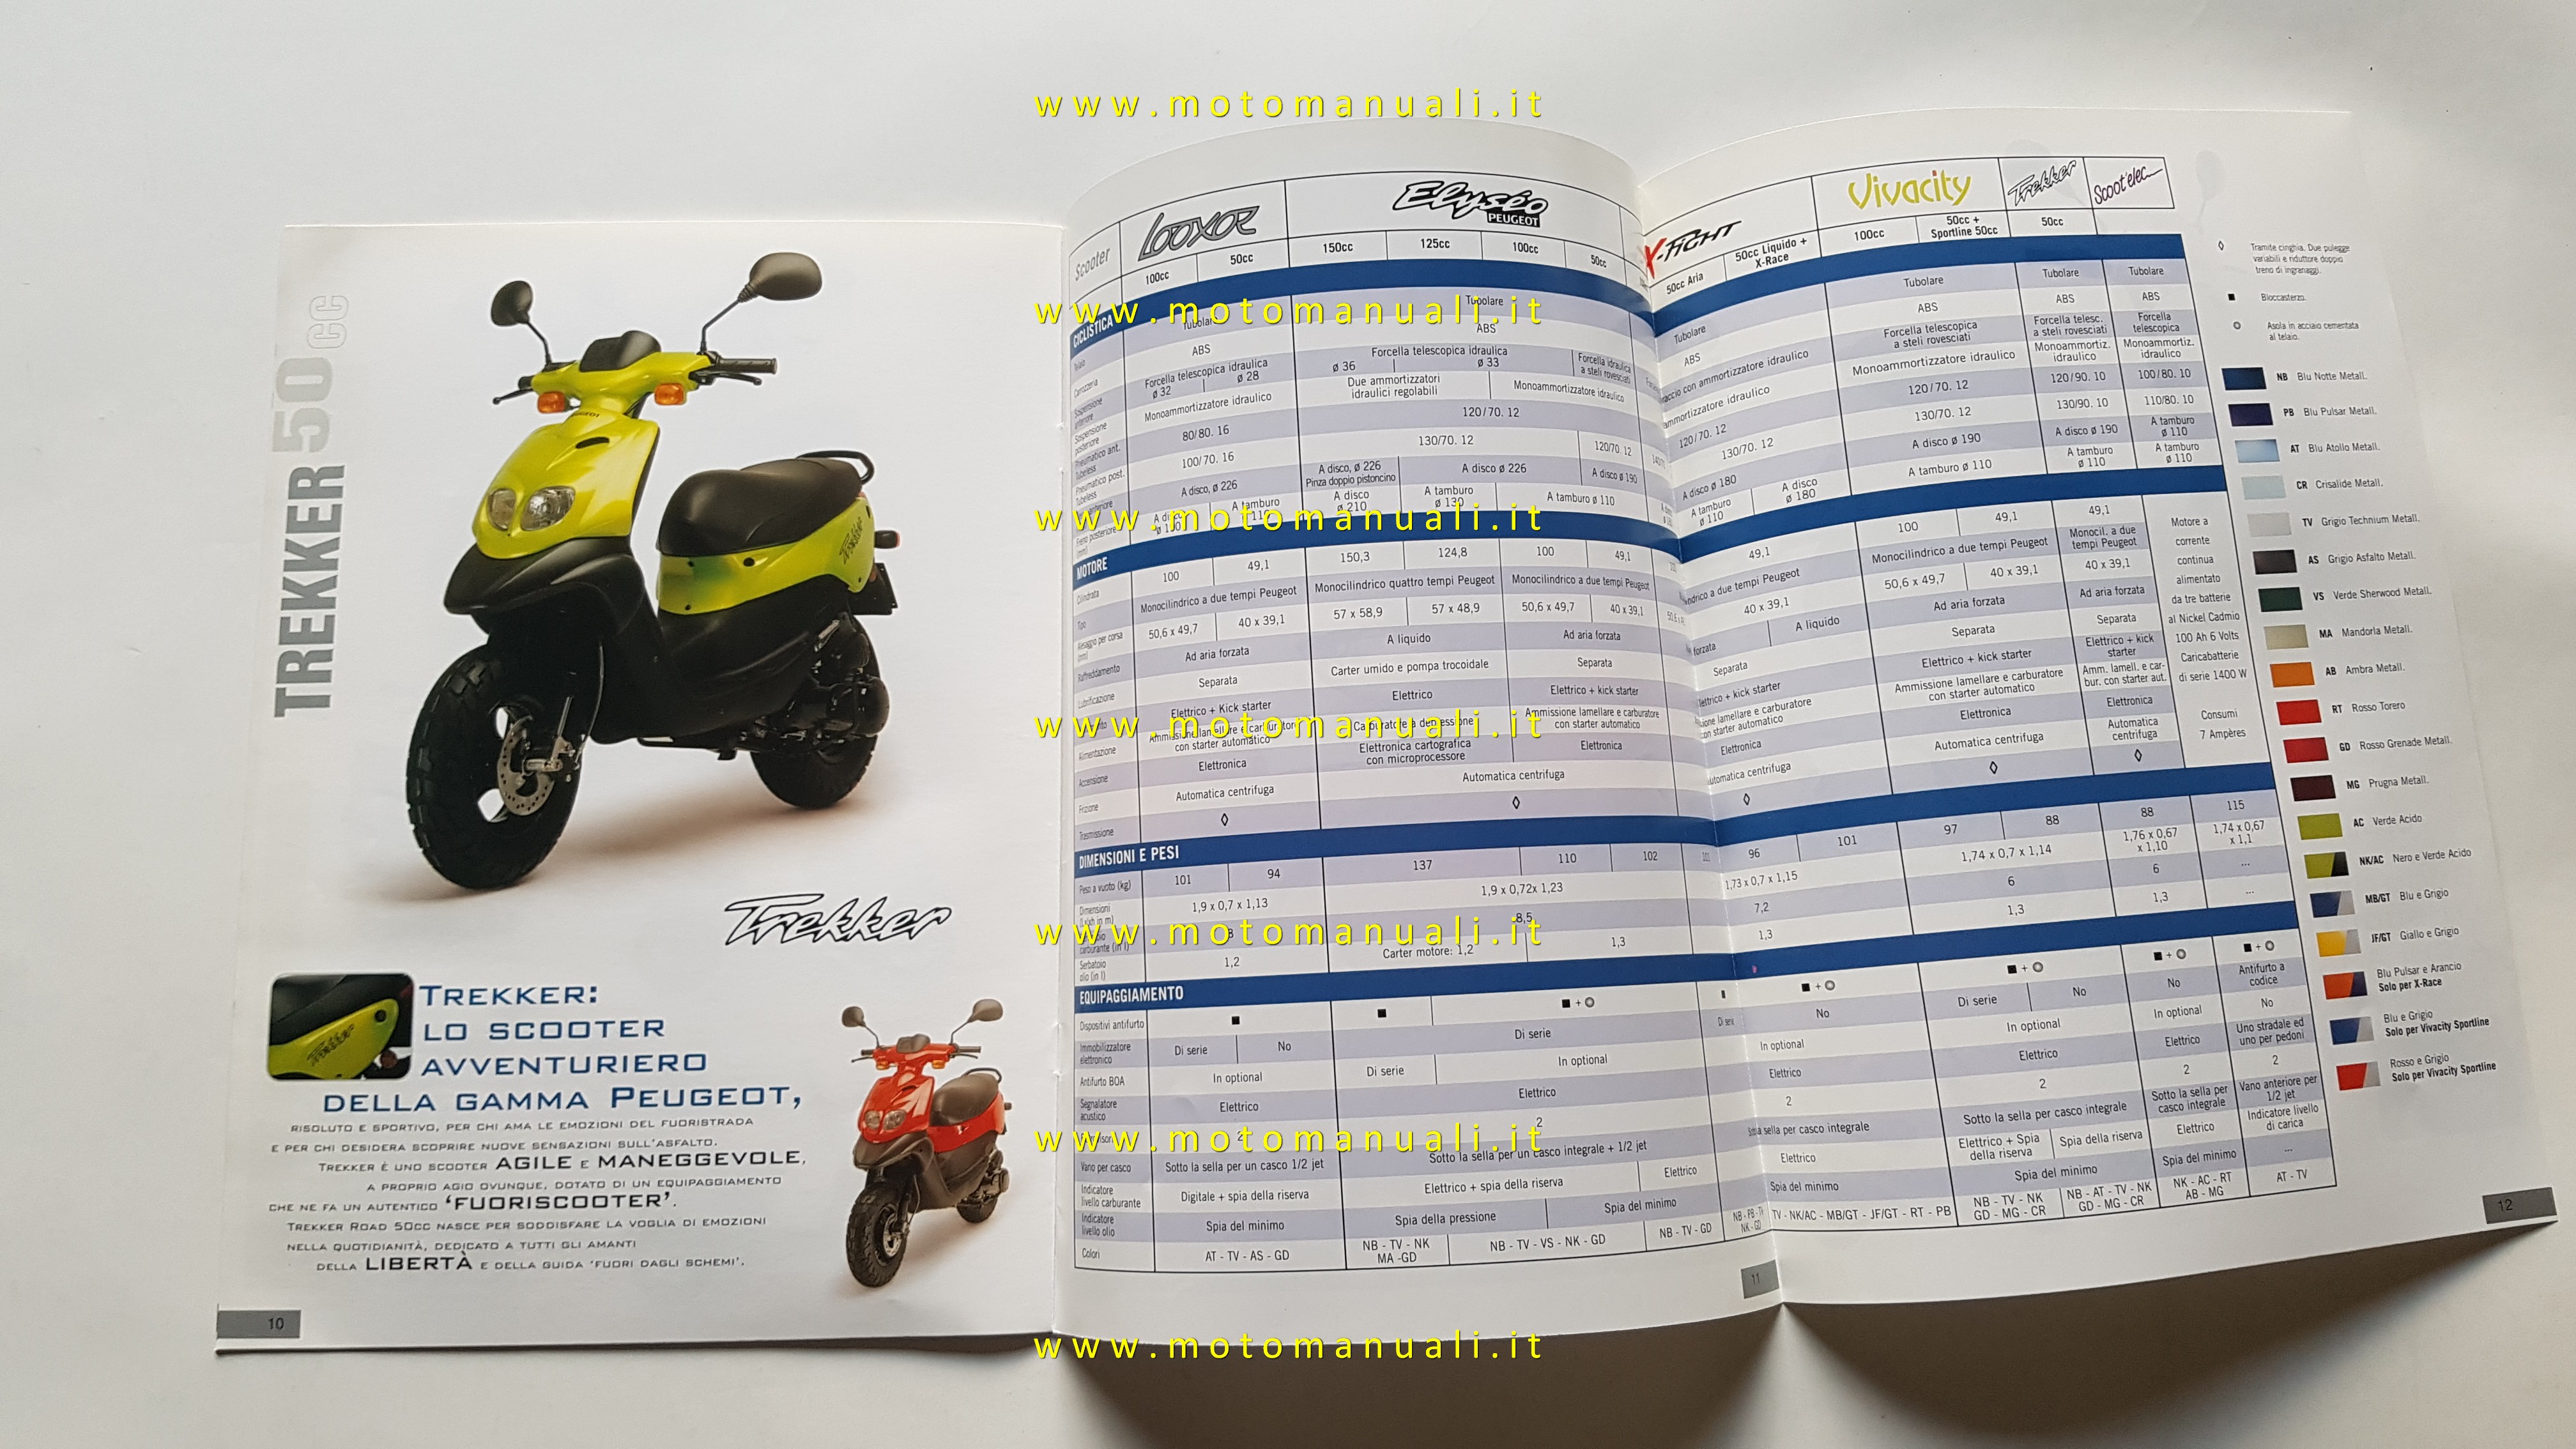 www.motomanuali.it
www.motomanuali.it
www.motomanuali.it
www.motomanuali.it
www.motomanuali.it
www.motomanuali.it
www.motomanuali.it
TREKKER 50cc
PEUGEOT
Trekker
Trekker
TREKKER:
LO SCOOTER
AVVENTURIERO
DELLA GAMMA PEUGEOT,
RISOLUTO E SPORTIVO, PER CHI AMA LE EMOZIONI DEL FUORISTRADA
E PER CHI DESIDERA SCOPRIRE NUOVE SENSAZIONI SULL'ASFALTO.
TREKKER È UNO SCOOTER AGILE E MANEGGEVOLE,
A PROPRIO AGIO OVUNQUE, DOTATO DI UN EQUIPAGGIAMENTO
CHE NE FA UN AUTENTICO 'FUORISCOOTER'.
TREKKER ROAD 50CC NASCE PER SODDISFARE LA VOGLIA DI EMOZIONI
NELLA QUOTIDIANITÀ, DEDICATO A TUTTI GLI AMANTI
DELLA LIBERTÀ E DELLA GUIDA 'FUORI DAGLI SCHEMI'.
10
Scooter LOOXOR Elyséo PEUGEOT X-FIGHT Vivacity Trekker Scoot'elec
100cc 50cc 150cc 125cc 100cc 50cc 50cc Aria 50cc Liquido + X-Race 100cc 50cc + Sportline 50cc 50cc
CICLISTICA
Telaio Tubolare Tubolare Tubolare Tubolare Tubolare Tubolare
Carrozzeria ABS ABS ABS ABS ABS ABS
Sospensione anteriore Forcella telescopica idraulica ø 32 ø 28 Forcella telescopica idraulica ø 36 ø 33 Forcella idraulica a steli rovesciati con ammortizzatore idraulico Forcella telescopica a steli rovesciati Forcella telesc. a steli rovesciati Forcella telescopica
Sospensione posteriore Monoammortizzatore idraulico Due ammortizzatori idraulici regolabili Monoammortizzatore idraulico idraulico Monoammortizzatore idraulico Monoammortiz. idraulico Monoammortiz. idraulico
Pneumatico ant. Tubeless 80/80. 16 120/70. 12 120/70. 12 120/70. 12 120/90. 10 100/80. 10
Pneumatico post. Tubeless 100/70. 16 130/70. 12 120/70. 12 130/70. 12 130/70. 12 130/90. 10 110/80. 10
A disco, ø 226 A disco, ø 226 Pinza doppio pistoncino A disco ø 226 A disco ø 190 A disco ø 180 A disco ø 190 A disco ø 190 A tamburo ø 110
Freno posteriore (mm) A tamburo A disco ø 210 A tamburo ø 130 A tamburo ø 110 A tamburo ø 110 A disco ø 180 A tamburo ø 110 A tamburo ø 110 A tamburo ø 110
MOTORE
Cilindrata 100 49,1 150,3 124,8 100 49,1 49,1 100 49,1 49,1
Tipo Monocilindrico a due tempi Peugeot Monocilindrico quattro tempi Peugeot Monocilindrico a due tempi Peugeot a due tempi Peugeot Monocilindrico a due tempi Peugeot Monocil. a due tempi Peugeot
Alesaggio per corsa (mm) 50,6 x 49,7 40 x 39,1 57 x 58,9 57 x 48,9 50,6 x 49,7 40 x 39,1 40 x 39,1 50,6 x 49,7 40 x 39,1 40 x 39,1
Raffreddamento Ad aria forzata A liquido Ad aria forzata forzata A liquido Ad aria forzata Ad aria forzata
Lubrificazione Separata Carter umido e pompa trocoidale Separata Separata Separata Separata
Elettrico + Kick starter Elettrico Elettrico + kick starter Elettrico + kick starter Elettrico + kick starter Elettrico + kick starter
Alimentazione Ammissione lamellare e carburatore con starter automatico Carburatore a depressione Ammissione lamellare e carburatore con starter automatico lamellare e carburatore con starter automatico Ammissione lamellare e carburatore con starter automatico Amm. lamell. e carbur. con starter aut.
Accensione Elettronica Elettronica cartografica con microprocessore Elettronica Elettronica Elettronica Elettronica
Frizione Automatica centrifuga Automatica centrifuga Automatica centrifuga Automatica centrifuga Automatica centrifuga
Trasmissione ◊ ◊ ◊ ◊ ◊
Motore a
corrente
continua
alimentato
da tre batterie
al Nickel Cadmio
100 Ah 6 Volts
Caricabatterie
di serie 1400 W
Consumi
7 Ampères
DIMENSIONI E PESI
Peso a vuoto (kg) 101 94 137 110 102 101 96 101 97 88 88 115
Dimensioni 1,9 x 0,7 x 1,13 1,9 x 0,72x 1,23 1,73 x 0,7 x 1,15 1,74 x 0,7 x 1,14 1,76 x 0,67 x 1,10 1,74 x 0,67 x 1,1
carburante (in l) 8 8,5 7,2 6 6 ...
Serbatoio olio (in l) 1,2 Carter motore: 1,2 1,3 1,3 1,3 1,3 ...
EQUIPAGGIAMENTO
Dispositivi antifurto ■ ■ ■ + ◎ ■ + ◎ ■ + ◎ ■ + ◎ ■ + ◎
Immobilizzatore elettronico Di serie No Di serie No Di serie No No Antifurto a codice
Antifurto BOA In optional Di serie In optional In optional In optional In optional No
Segnalatore acustico Elettrico Elettrico Elettrico Elettrico Elettrico Uno stradale ed uno per pedoni
2 2 2 2 2 2
Vano per casco Sotto la sella per un casco 1/2 jet Sotto la sella per un casco integrale + 1/2 jet sella per casco integrale Sotto la sella per casco integrale Sotto la sella per casco integrale Vano anteriore per 1/2 jet
Indicatore livello carburante Digitale + spia della riserva Elettrico + spia della riserva Elettrico Elettrico Elettrico + Spia della riserva Spia della riserva Elettrico Indicatore livello di carica
Indicatore livello olio Spia del minimo Spia della pressione Spia del minimo Spia del minimo Spia del minimo Spia del minimo ...
Colori AT - TV - AS - GD NB - TV - NK MA -GD NB - TV - VS - NK - GD NB - TV - GD TV - NK/AC - MB/GT - JF/GT - RT - PB NB - TV - NK GD - MG - CR NB - AT - TV - NK GD - MG - CR NK - AC - RT AB - MG AT - TV
11
◊ Tramite cinghia. Due pulegge
variabili e riduttore doppio
treno di ingranaggi.
■ Bloccasterzo.
◎ Asola in acciaio cementata
al telaio.
NB Blu Notte Metall.
PB Blu Pulsar Metall.
AT Blu Atollo Metall.
CR Crisalide Metall.
TV Grigio Technium Metall.
AS Grigio Asfalto Metall.
VS Verde Sherwood Metall.
MA Mandorla Metall.
AB Ambra Metall.
RT Rosso Torero
GD Rosso Grenade Metall.
MG Prugna Metall.
AC Verde Acido
NK/AC Nero e Verde Acido
MB/GT Blu e Grigio
JF/GT Giallo e Grigio
Blu Pulsar e Arancio
Solo per X-Race
Blu e Grigio
Solo per Vivacity Sportline
Rosso e Grigio
Solo per Vivacity Sportline
12